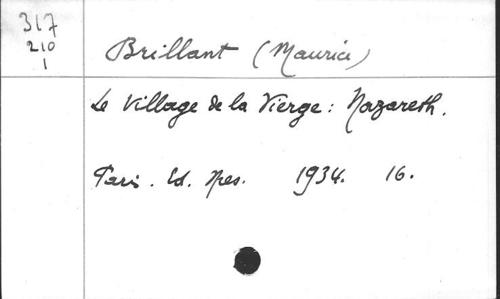 317
210
1
Brillant (Maurice)
Le Village de la Vierge : Nazareth.
Paris. Ed. Spes. 1934. 16.